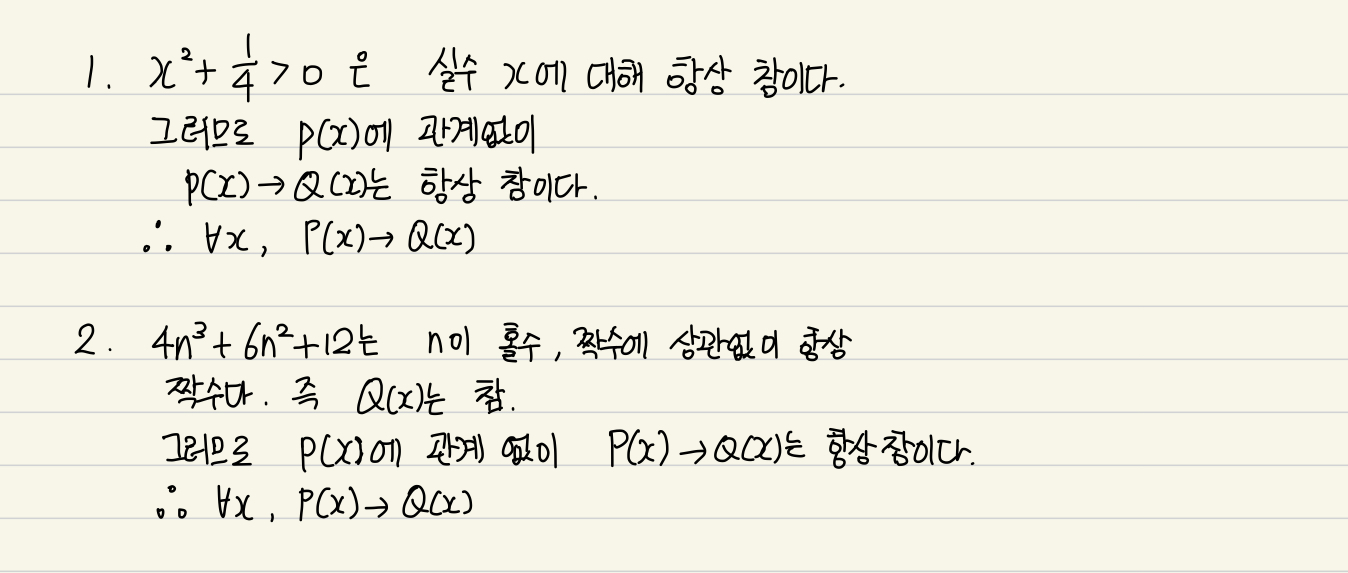 1. x² + 1/4 > 0 은 실수 x에 대해 항상 참이다.
그러므로 p(x)에 관계없이
p(x) → Q(x)는 항상 참이다.
∴ ∀x, P(x) → Q(x)
2. 4n³ + 6n² + 12는 n이 홀수, 짝수에 상관없이 항상
짝수다. 즉 Q(x)는 참.
그러므로 p(x)에 관계 없이 P(x) → Q(x)는 항상 참이다.
∴ ∀x, P(x) → Q(x)